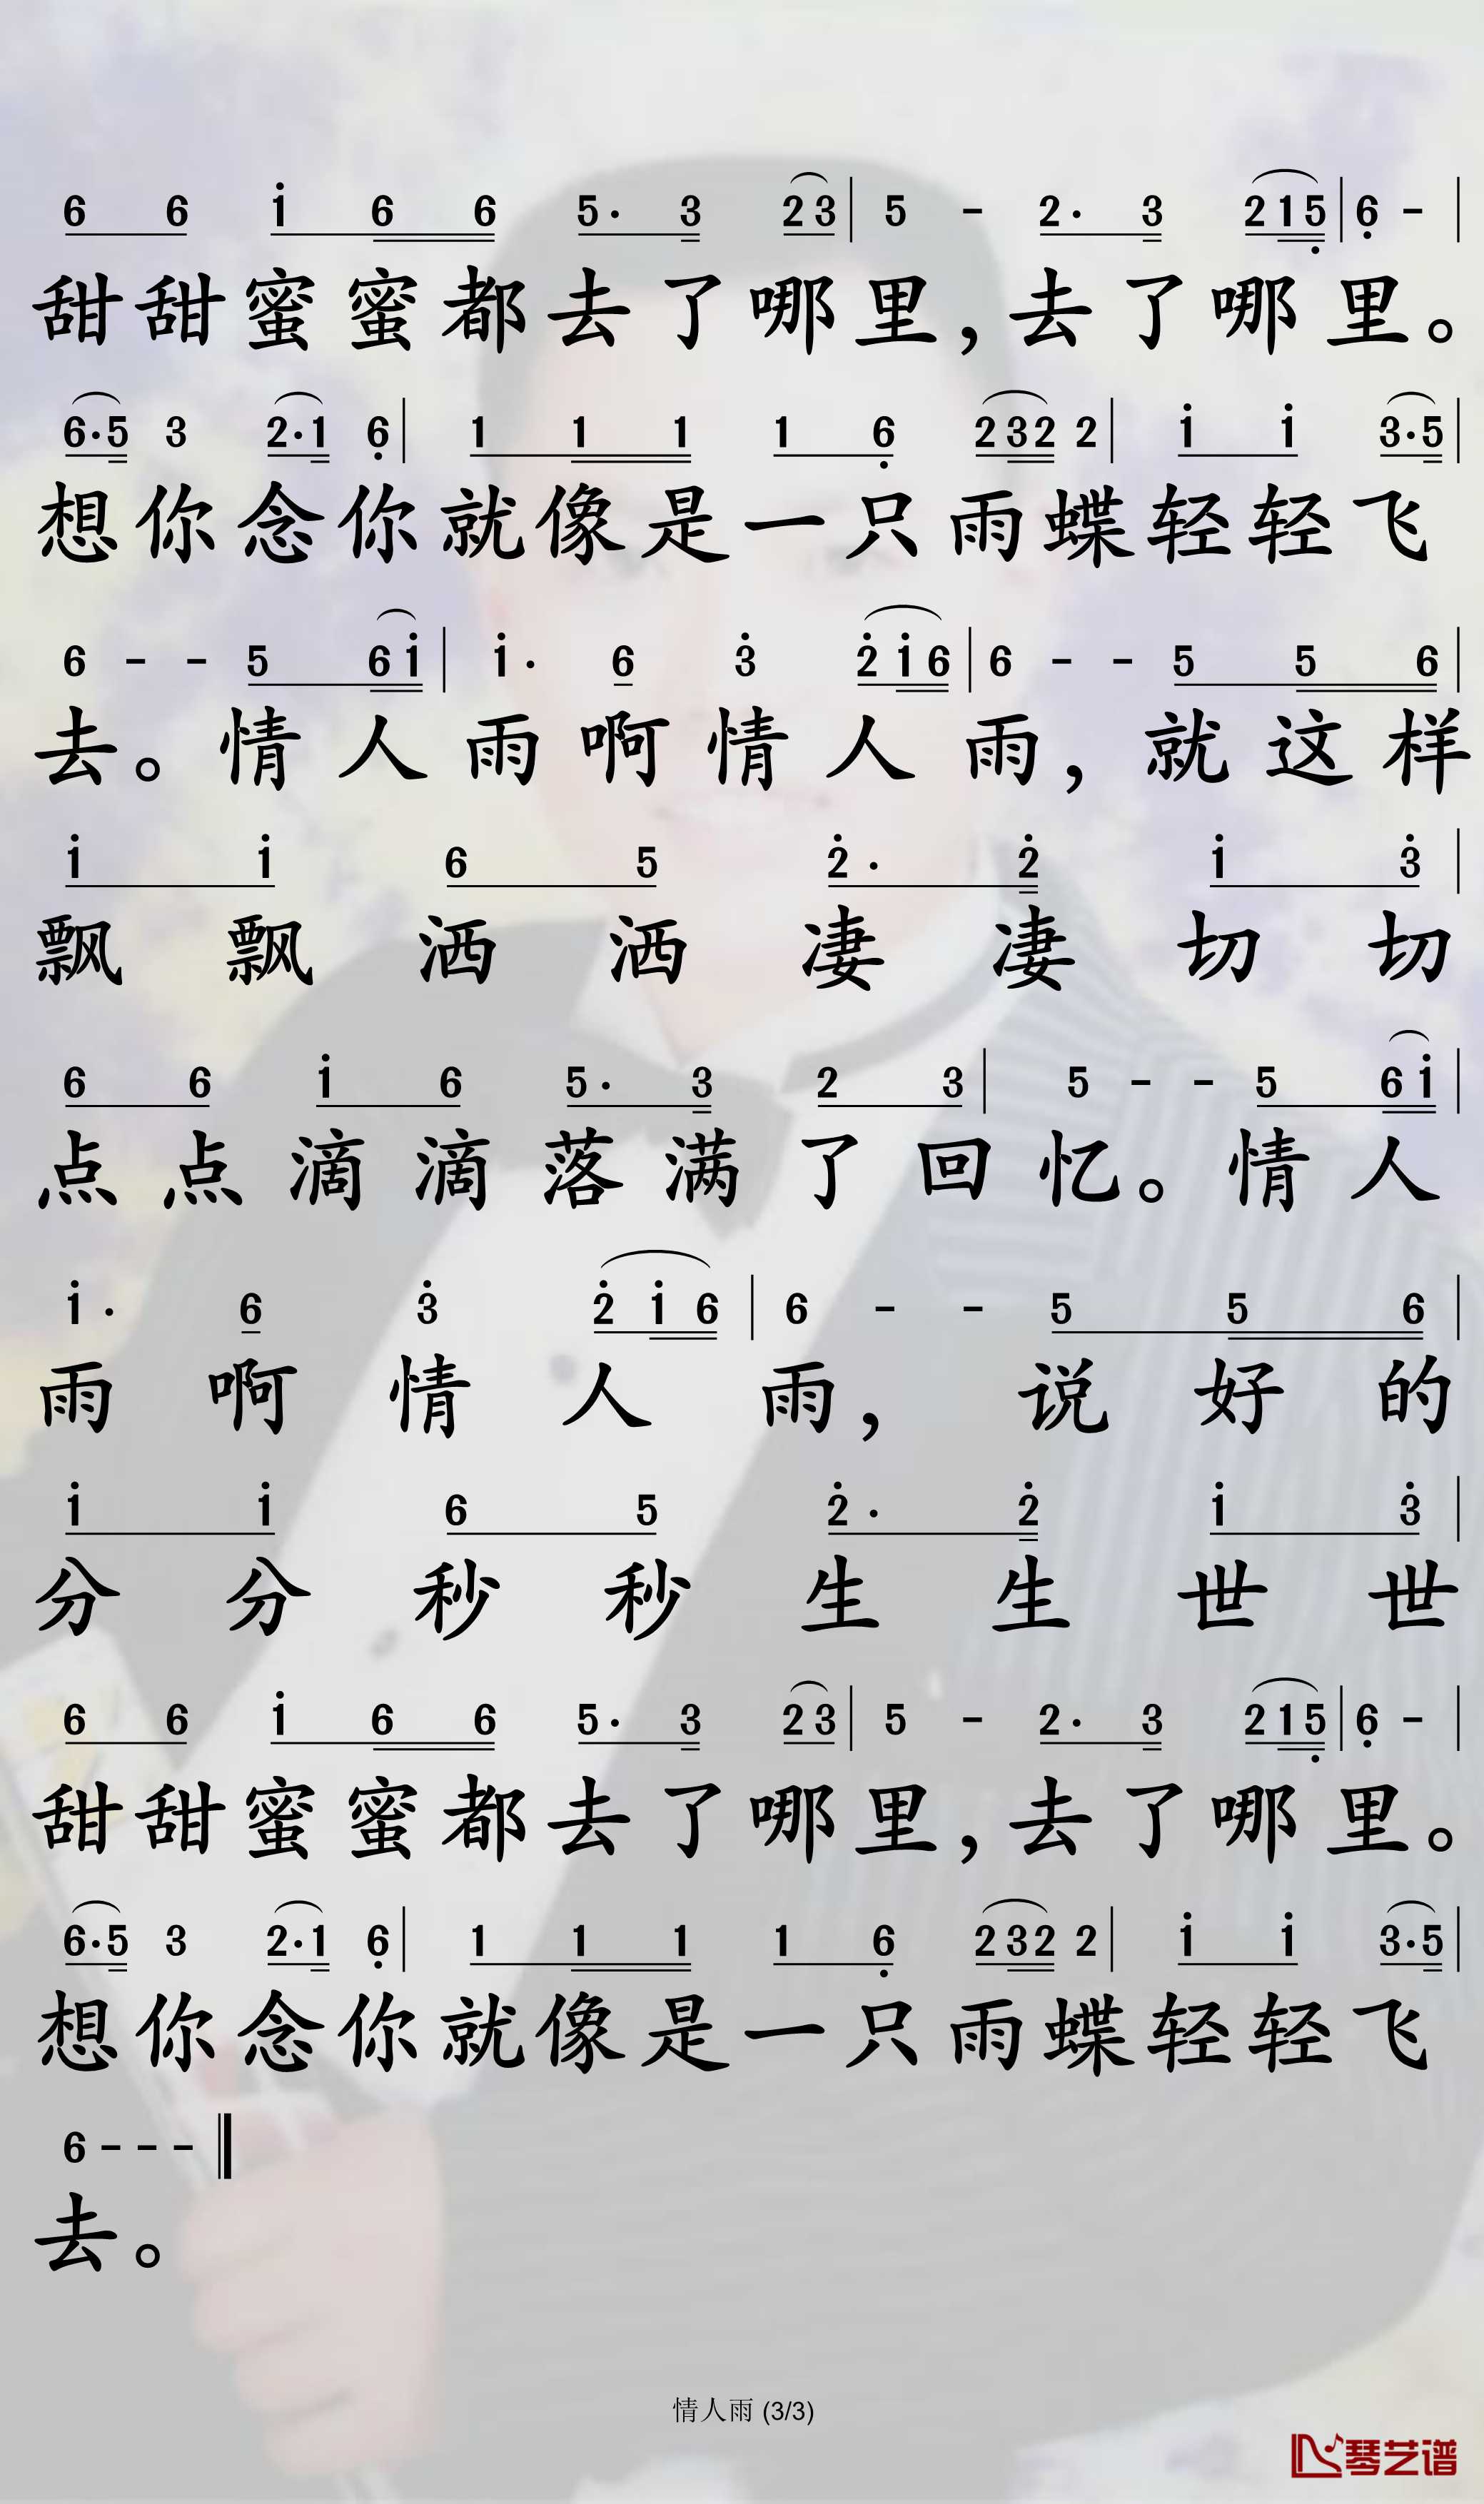 6 6 i 6 6 5· 3 2 3 | 5 - 2· 3 2 1 5̣ | 6̣ - |
甜甜蜜蜜都去了哪里,去了哪里。
6·5 3 2·1 6̣ | 1 1 1 1 6̣ 2 3 2 2 | i i 3·5 |
想你念你就像是一只雨蝶轻轻飞
6 - - 5 6 i | i· 6 3̇ 2̇ i 6 | 6 - - 5 5 6 |
去。情人雨啊情人雨,就这样
i i 6 5 2̇· 2̇ i 3̇ |
飘飘洒洒凄凄切切
6 6 i 6 5· 3 2 3 | 5 - - 5 6 i |
点点滴滴落满了回忆。情人
i· 6 3̇ 2̇ i 6 | 6 - - 5 5 6 |
雨啊情人雨,说好的
i i 6 5 2̇· 2̇ i 3̇ |
分分秒秒生生世世
6 6 i 6 6 5· 3 2 3 | 5 - 2· 3 2 1 5̣ | 6̣ - |
甜甜蜜蜜都去了哪里,去了哪里。
6·5 3 2·1 6̣ | 1 1 1 1 6̣ 2 3 2 2 | i i 3·5 |
想你念你就像是一只雨蝶轻轻飞
6 - - - ‖
去。
情人雨 (3/3)
琴艺谱